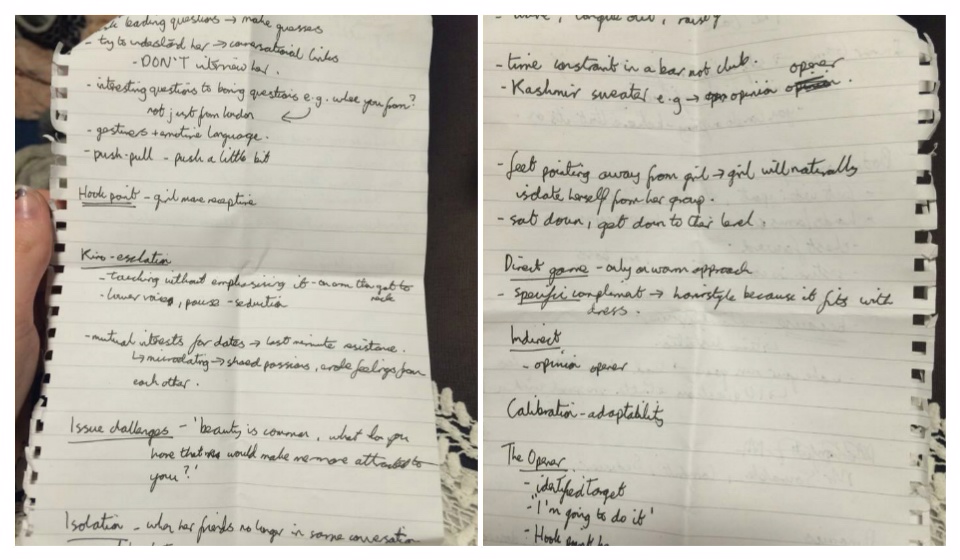 leading questions → make guesses
- try to understand her → conversational links
- DON'T interview her.
- interesting questions to boring questions e.g. where you from?
not just from london
- gestures + emotive language.
- push-pull - push a little bit
Hook point - girl more receptive
Kino-escalation
- touching without emphasising it - on arm then got to neck
- lower voice, pause - seduction
- mutual interests for dates → last minute resistance.
↳ microdating → shared passions, evoke feelings from
each other.
Issue challenges - 'beauty is common, what do you
have that would make me more attracted to
you?'
Isolation - when her friends no longer in same conversation
tongue out, raise?
- time constraint in a bar not club.
- Kashmir sweater e.g → opinion opener.
- feet pointing away from girl → girl will naturally
isolate herself from her group.
- sat down, get down to their level
Direct game - only on warm approach
- specific compliment → hairstyle because it fits with
dress.
Indirect
- opinion opener
Calibration - adaptability
The Opener
- identified target
- "I'm going to do it'
- Hook point